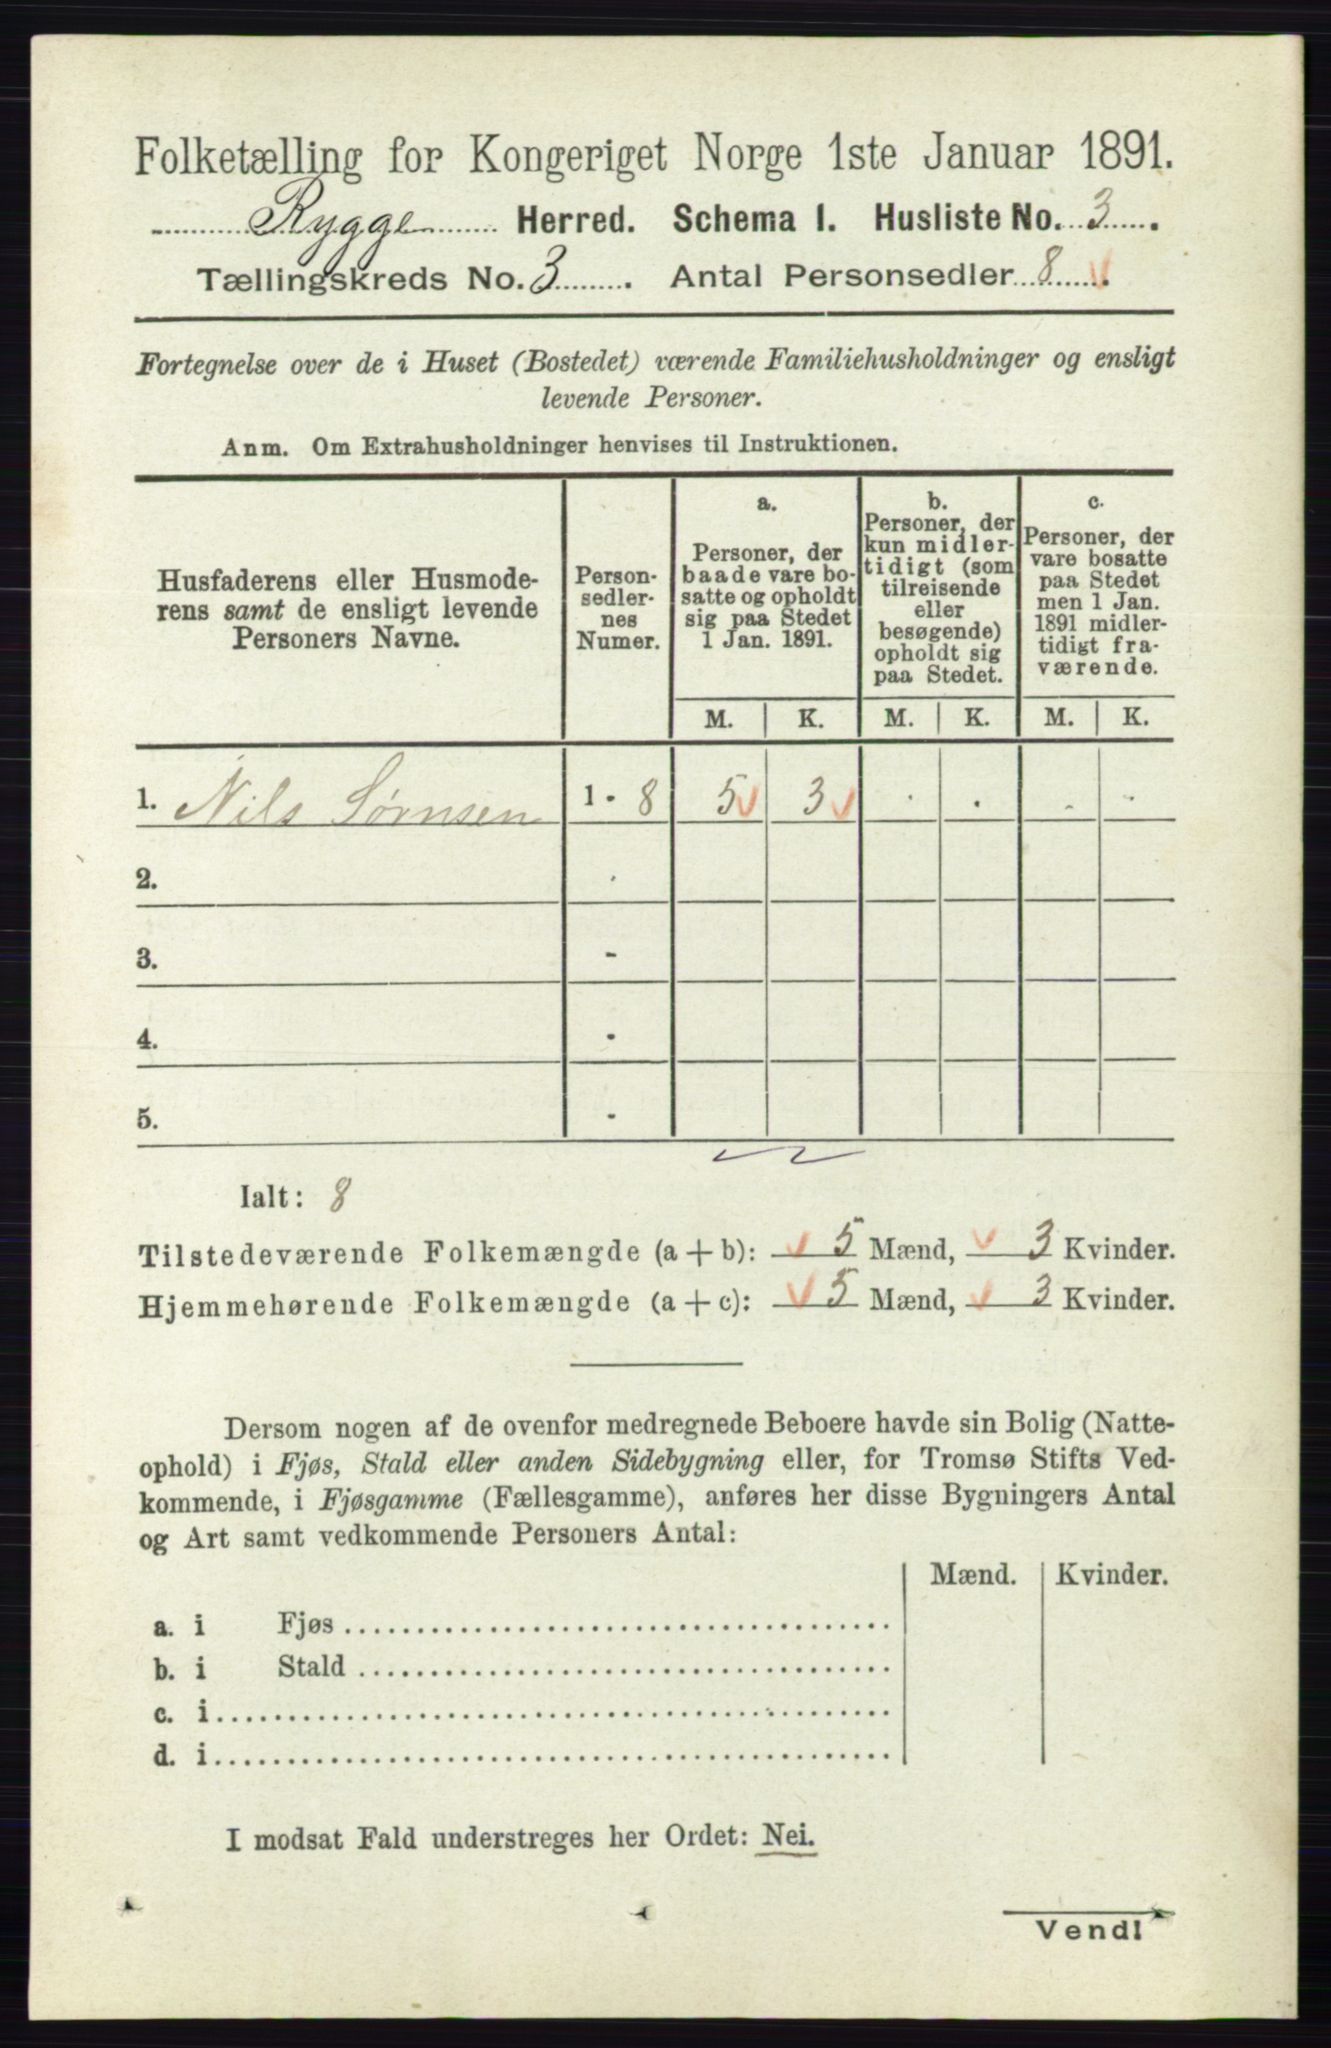 Folketælling for Kongeriget Norge 1ste Januar 1891.
Rygge Herred. Schema I. Husliste No. 3.
Tællingskreds No. 3. Antal Personsedler 8.
Fortegnelse over de i Huset (Bostedet) værende Familiehusholdninger og ensligt
levende Personer.
Anm. Om Extrahusholdninger henvises til Instruktionen.
Husfaderens eller Husmode-
rens samt de ensligt levende
Personers Navne.
Person-
sedler-
nes
Numer.
a.
Personer, der
baade vare bo-
satte og opholdt
sig paa Stedet
1 Jan. 1891.
b.
Personer, der
kun midler-
tidigt (som
tilreisende
eller
besøgende)
opholdt sig
paa Stedet.
c.
Personer, der
vare bosatte
paa Stedet
men 1 Jan.
1891 midler-
tidigt fra-
værende.
M. K. M. K. M. K.
1. Nils Sørnsen 1 - 8 5 3 . . . .
2. -
3. -
4. -
5. -
Ialt: 8
Tilstedeværende Folkemængde (a + b): 5 Mænd, 3 Kvinder.
Hjemmehørende Folkemængde (a + c): 5 Mænd, 3 Kvinder.
Dersom nogen af de ovenfor medregnede Beboere havde sin Bolig (Natte-
ophold) i Fjøs, Stald eller anden Sidebygning eller, for Tromsø Stifts Ved-
kommende, i Fjøsgamme (Fællesgamme), anføres her disse Bygningers Antal
og Art samt vedkommende Personers Antal:
Mænd. Kvinder.
a. i Fjøs
b. i Stald
c. i
d. i
I modsat Fald understreges her Ordet: Nei.
Vend!